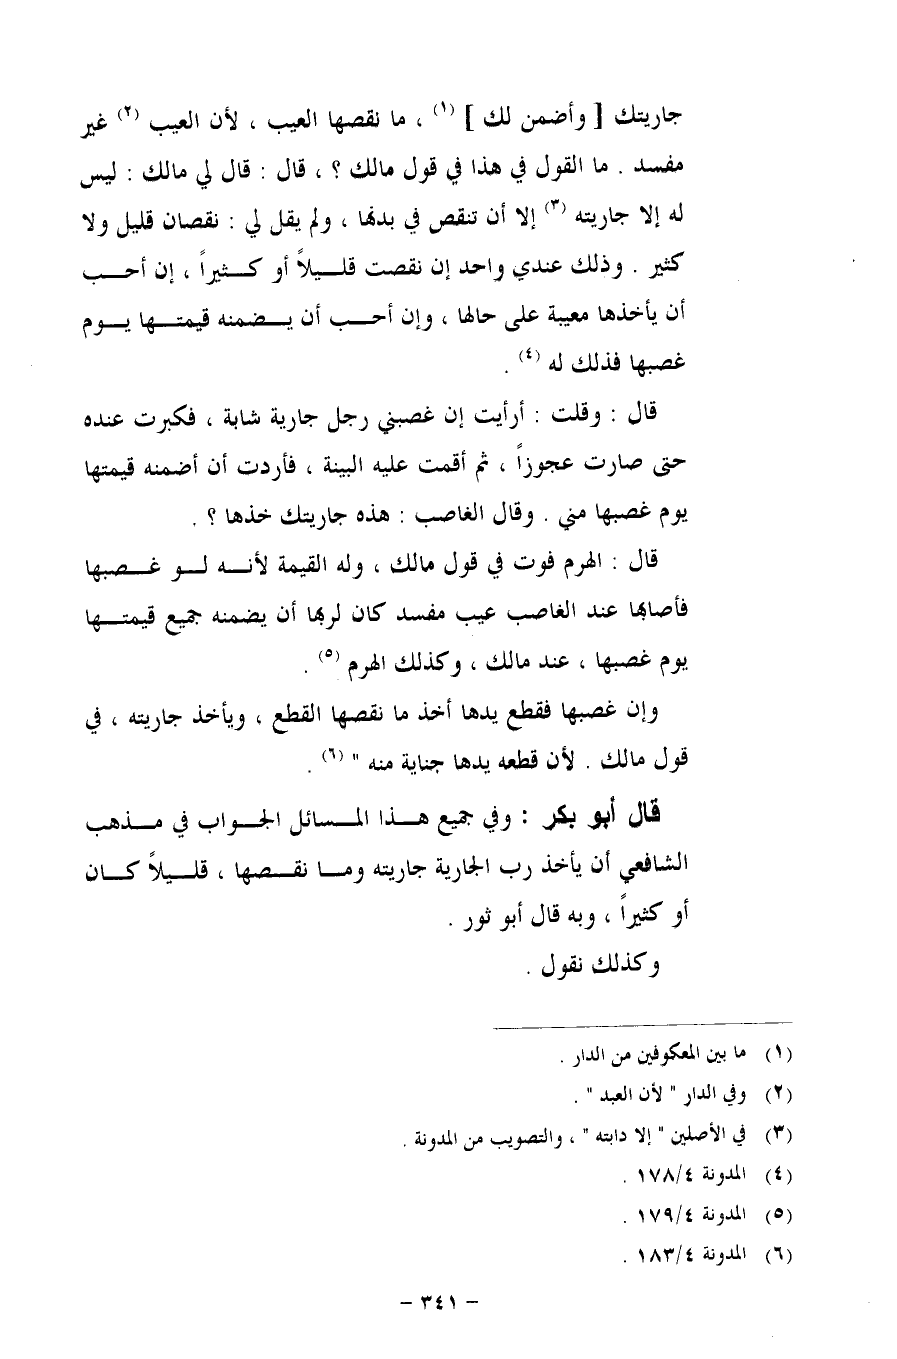 جاريتك [ وأضمن لك ] (١) ، ما نقصها العيب ، لأن العيب (٢) غير
مفسد . ما القول في هذا في قول مالك ؟ ، قال : قال لي مالك : ليس
له إلا جاريته (٣) إلا أن تنقص في بدنها ، ولم يقل لي : نقصان قليل ولا
كثير . وذلك عندي واحد إن نقصت قليلاً أو كثيراً ، إن أحب
أن يأخذها معيبة على حالها ، وإن أحب أن يضمنه قيمتها يوم
غصبها فذلك له (٤) .
قال : وقلت : أرأيت إن غصبني رجل جارية شابة ، فكبرت عنده
حتى صارت عجوزاً ، ثم أقمت عليه البينة ، فأردت أن أضمنه قيمتها
يوم غصبها مني . وقال الغاصب : هذه جاريتك خذها ؟ .
قال : الهرم فوت في قول مالك ، وله القيمة لأنه لو غصبها
فأصابها عند الغاصب عيب مفسد كان لربها أن يضمنه جميع قيمتها
يوم غصبها ، عند مالك ، وكذلك الهرم (٥) .
وإن غصبها فقطع يدها أخذ ما نقصها القطع ، ويأخذ جاريته ، في
قول مالك . لأن قطعه يدها جناية منه " (٦) .
قال أبو بكر : وفي جميع هذا المسائل الجواب في مذهب
الشافعي أن يأخذ رب الجارية جاريته وما نقصها ، قليلاً كان
أو كثيراً ، وبه قال أبو ثور .
وكذلك نقول .
(١) ما بين المعكوفين من الدار .
(٢) وفي الدار " لأن العبد " .
(٣) في الأصلين " إلا دابته " ، والتصويب من المدونة .
(٤) المدونة ١٧٨/٤ .
(٥) المدونة ١٧٩/٤ .
(٦) المدونة ١٨٣/٤ .
- ٣٤١ -